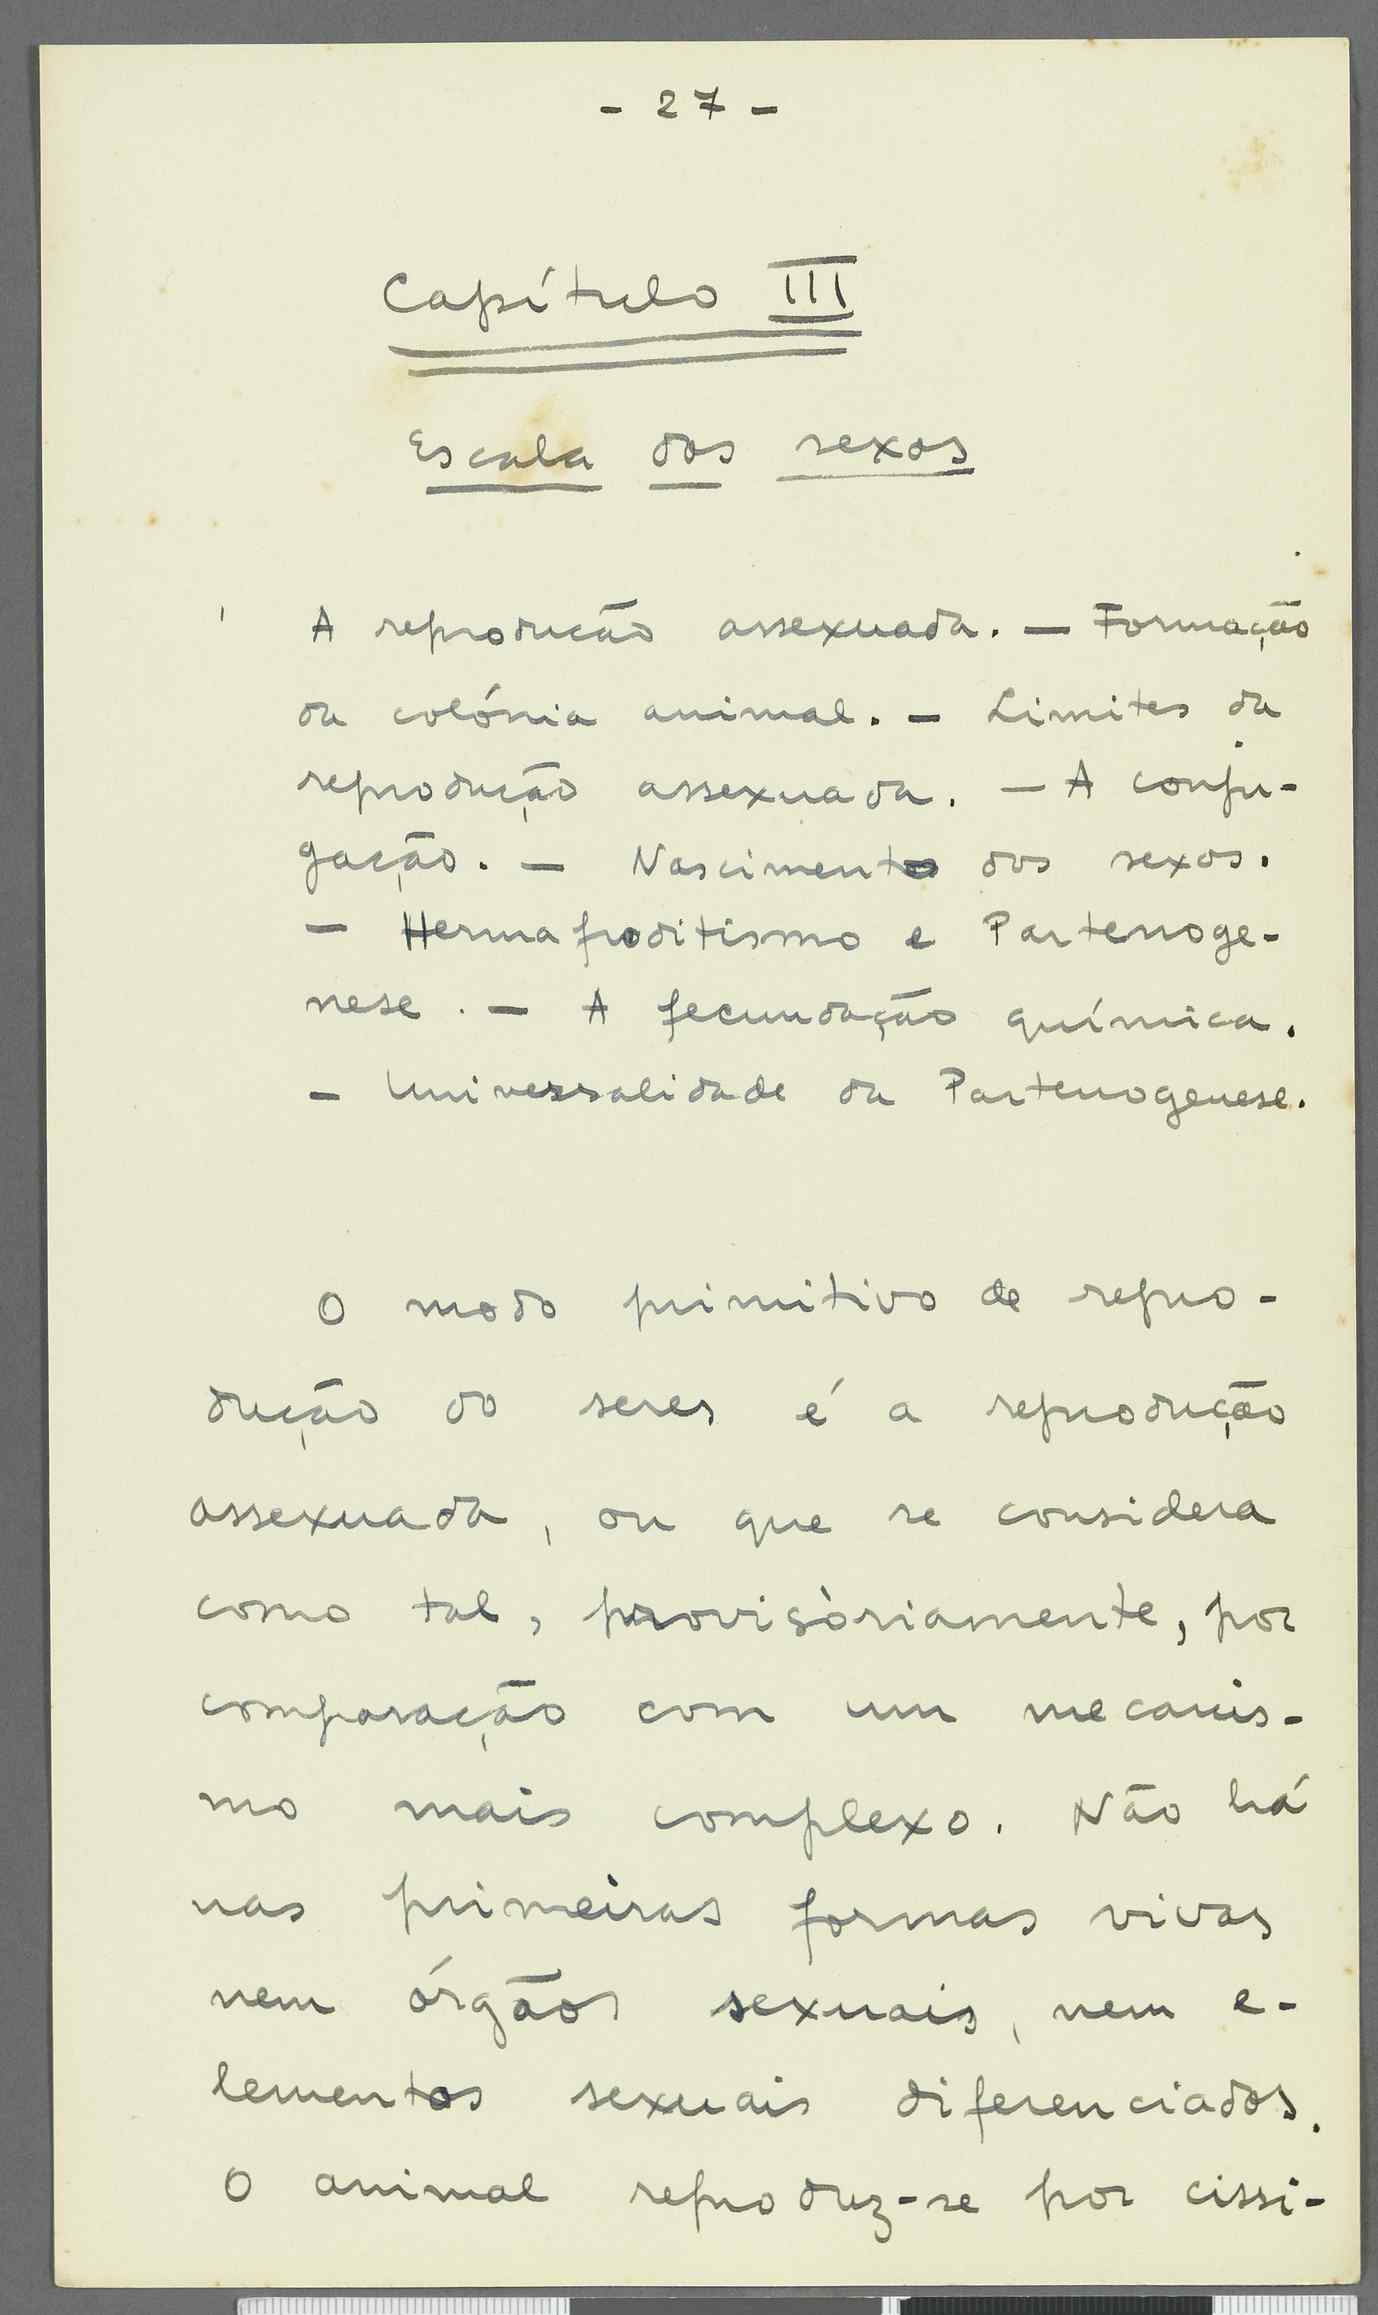 - 27 -
Capítulo III
Escala dos sexos
A reprodução assexuada. — Formação
da colónia animal. — Limites da
reprodução assexuada. — A conju-
gação. — Nascimento dos sexos.
— Hermafroditismo e Partenoge-
nese. — A fecundação química.
— Universalidade da Partenogenese.
O modo primitivo de repro-
dução do seres é a reprodução
assexuada, ou que se considera
como tal, provisòriamente, por
comparação com um mecanis-
mo mais complexo. Não há
nas primeiras formas vivas
nem órgãos sexuais, nem e-
lementos sexuais diferenciados.
O animal reproduz-se por cissi-